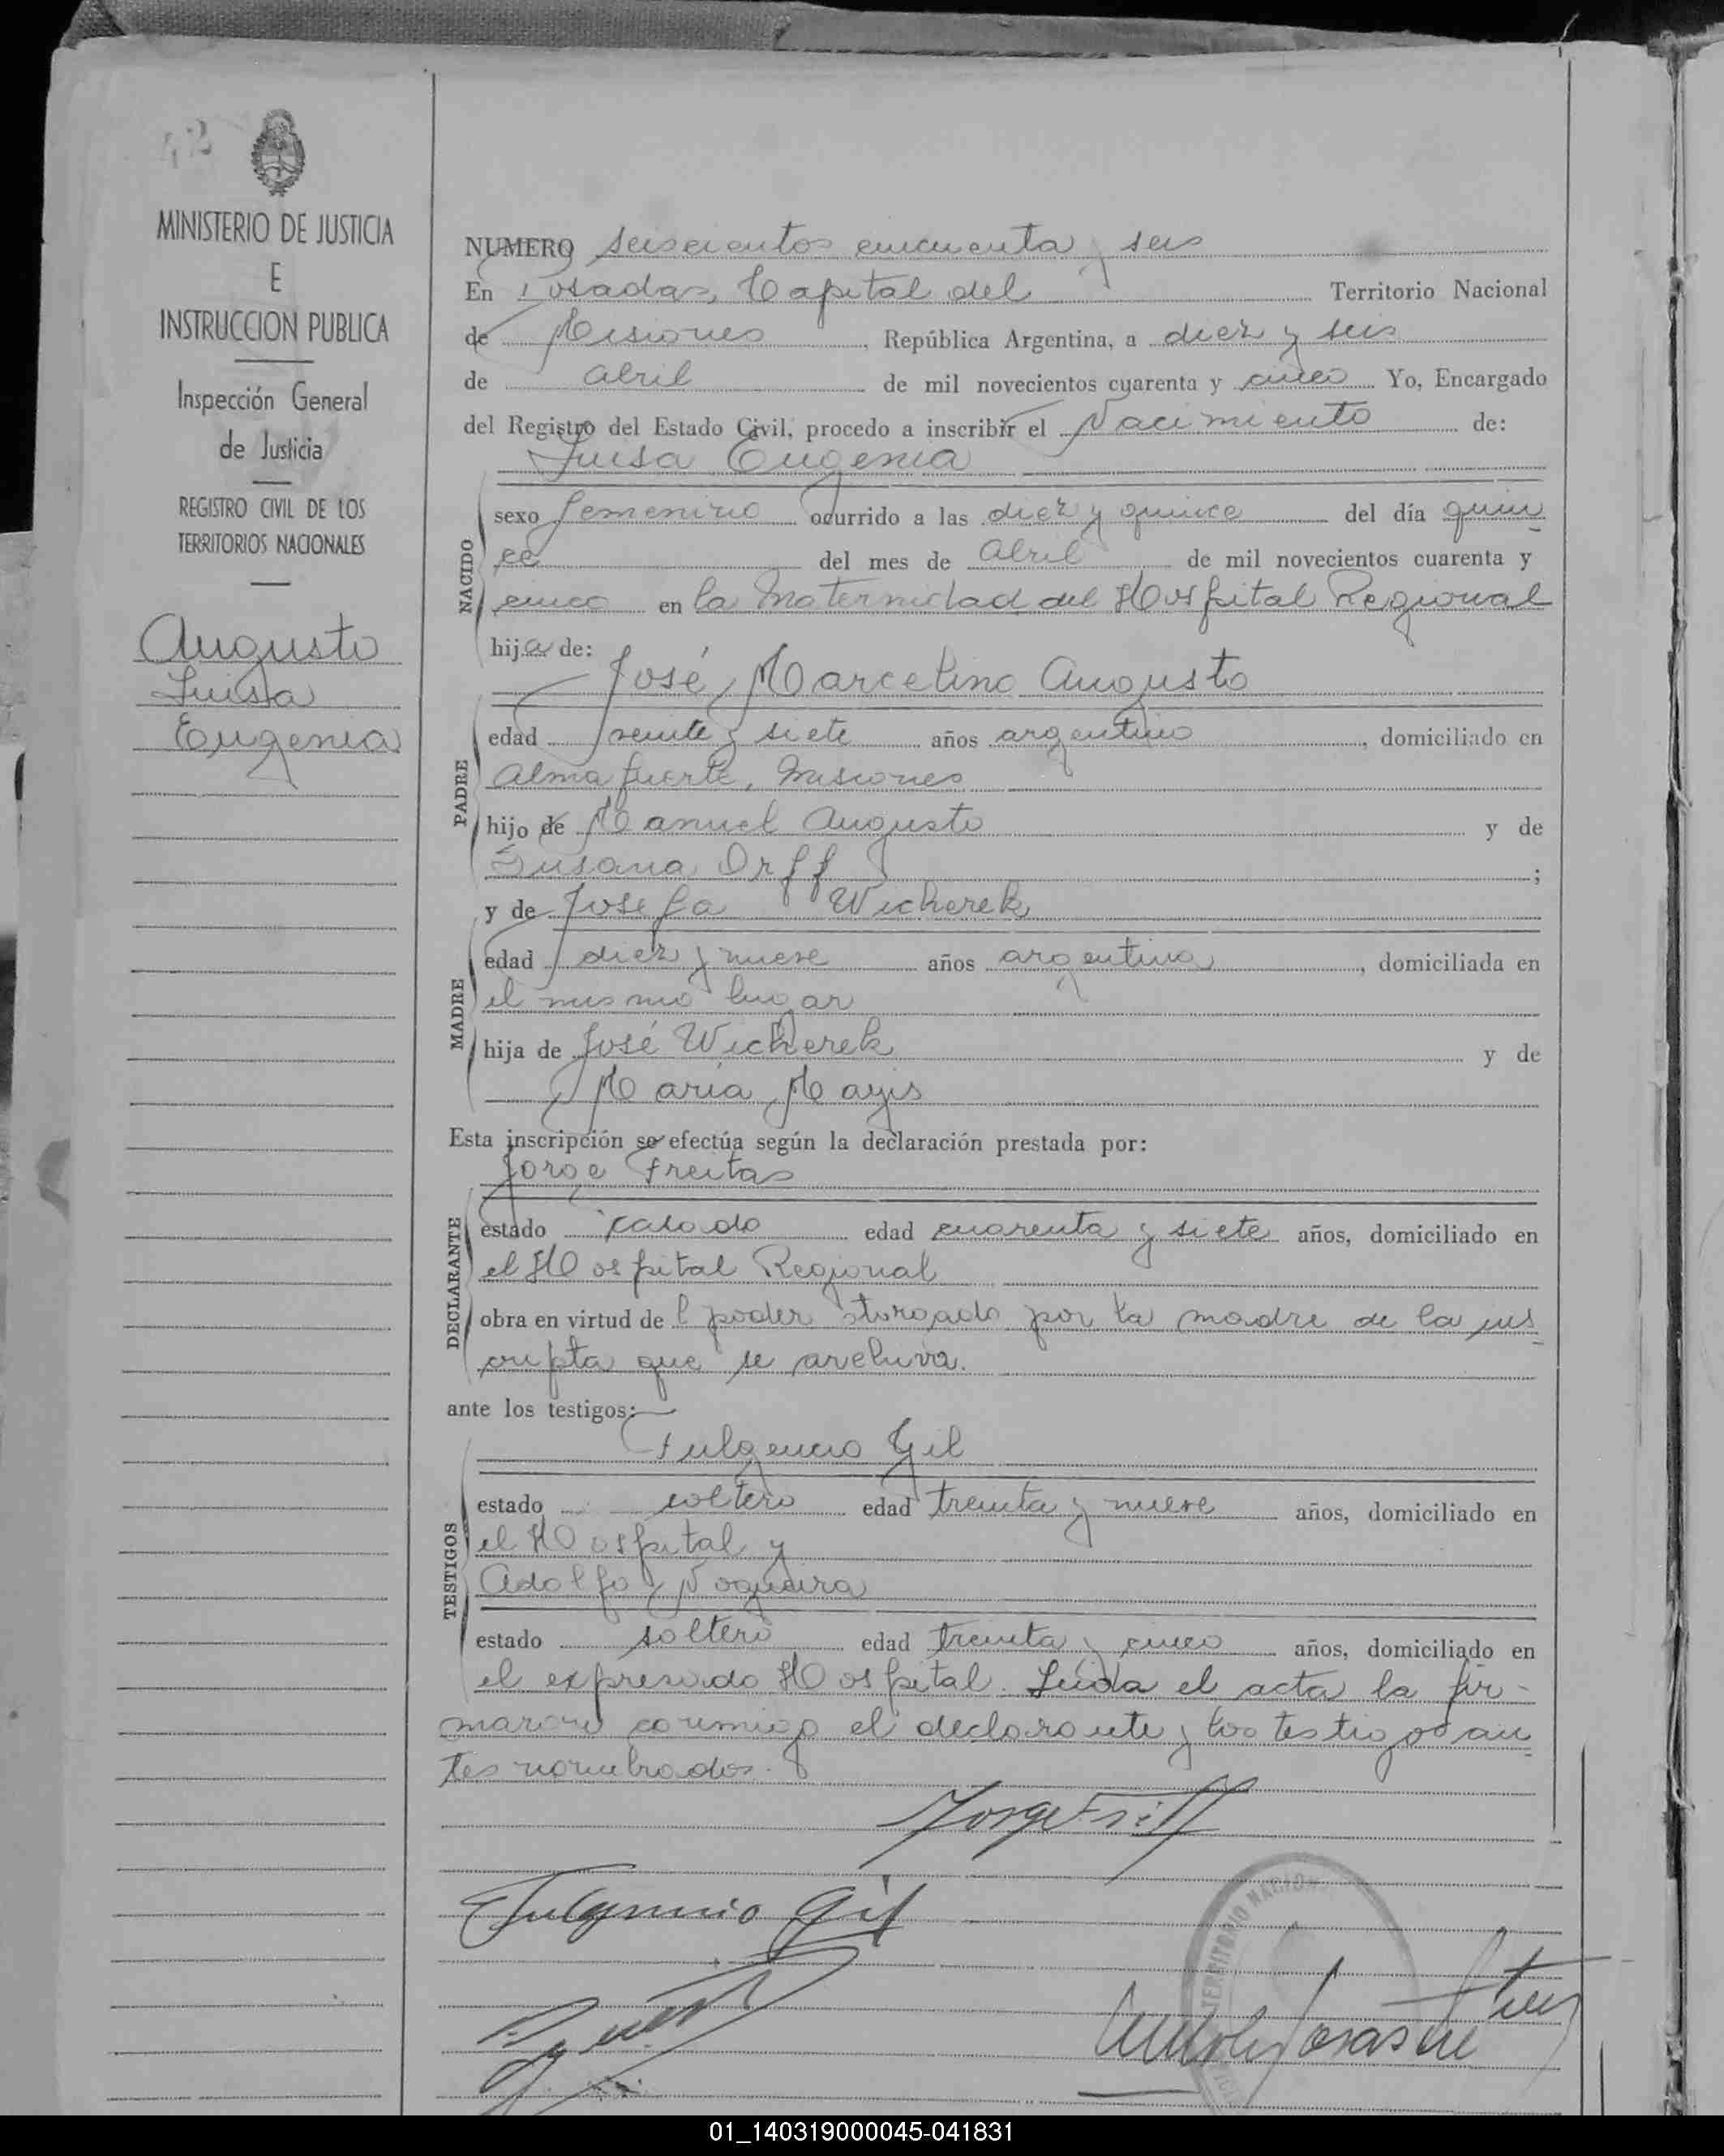 42
MINISTERIO DE JUSTICIA
E
INSTRUCCION PUBLICA
Inspección General
de Justicia
REGISTRO CIVIL DE LOS
TERRITORIOS NACIONALES
Augusto
Luisa
Eugenia
NUMERO seiscientos cincuenta y seis
En Posadas, Capital del Territorio Nacional
de Misiones, República Argentina, a diez y seis
de abril de mil novecientos cuarenta y cinco Yo, Encargado
del Registro del Estado Civil, procedo a inscribir el Nacimiento de:
Luisa Eugenia
NACIDO
sexo femenino ocurrido a las diez y quince del día quin
ce del mes de Abril de mil novecientos cuarenta y
cinco en la Maternidad del Hospital Regional
hija de:
José Marcelino Augusto
PADRE
edad veinte y siete años argentino, domiciliado en
Alma fuerte, Misiones
hijo de Manuel Augusto y de
Susana Orff ;
y de Josefa Wicherek
MADRE
edad diez y nueve años argentina, domiciliada en
el mismo lugar
hija de José Wicherek y de
María Mayis
Esta inscripción se efectúa según la declaración prestada por:
Jorge Freitas
DECLARANTE
estado casado edad cuarenta y siete años, domiciliado en
el Hospital Regional
obra en virtud de l poder otorgado por la madre de la ins
cripta que se archiva.
ante los testigos:
Fulgencio Gil
TESTIGOS
estado soltero edad treinta y nueve años, domiciliado en
el Hospital y
Adolfo Nogueira
estado soltero edad treinta y cinco años, domiciliado en
el expresado Hospital. Leida el acta la fir-
maron conmigo el declarante y los testigos an
tes nombrados.
Fulgencio Gil
TERRITORIO NACION
01_140319000045-041831